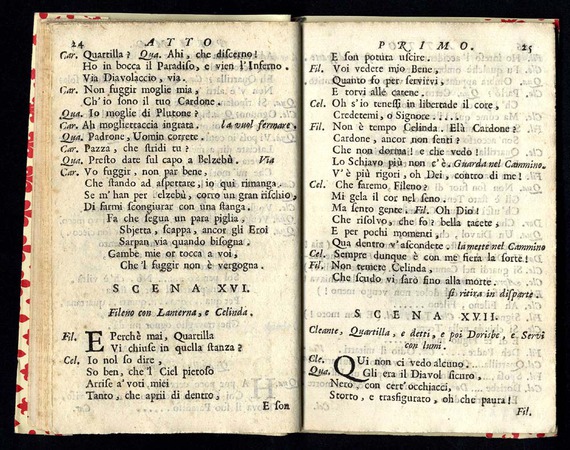 24 ATTO
Car. Quartilla? Qua. Ahi, che discerno!
Ho in bocca il Paradiso, e vien l'Inferno.
Via Diavolaccio, via.
Car. Non fuggir moglie mia,
Ch'io sono il tuo Cardone.
Qua. Io moglie di Plutone?
Car. Ah moglietraccia ingrata. la vuol fermare.
Qua. Padrone, Uomin correte.
Car. Pazza, che stridi tu?
Qua. Presto date sul capo a Belzebù. Via
Car. Vo fuggir, non par bene,
Che stando ad aspettare, io qui rimanga,
Se m'han per elzebù, corro un gran rischio,
Di farmi scongiurar con una stanga.
Fa che segua un para piglia,
Sbjetta, scappa, ancor gli Eroi
Sarpan via quando bisogna.
Gambe mie or tocca a voi,
Che 'l fuggir non è vergogna.
SCENA XVI.
Fileno con Lanterna, e Celinda.
Fil. E Perchè mai, Quartilla
Vi chiuse in quella stanza?
Cel. Io nol so dire,
So ben, che 'l Ciel pietoso
Arrise a' voti miei
Tanto, che aprii di dentro,
E son
PRIMO. 25
E son potuta uscire.
Fil. Voi vedete mio Bene,
Quanto fo per servirvi,
E torvi alle catene.
Cel. Oh s'io tenessi in libertade il core,
Credetemi, o Signore.....
Fil. Non è tempo Celinda. Elà Cardone?
Cardone, ancor non senti?
Che non dorma! e che vedo!
Lo Schiavo più non c'è. Guarda nel Cammino.
V'è più rigori, oh Dei, contro di me!
Cel. Che faremo Fileno?
Mi gela il cor nel seno.
Ma sento gente. Fil. Oh Dio!
Che risolvo, che fo? bella tacete,
E per pochi momenti,
Qua dentro v'ascondete. la mette nel Cammino
Cel. Sempre dunque è con me fiera la sorte!
Fil. Non temete Celinda,
Che scudo vi farò fino alla morte.
si ritira in disparte.
SCENA XVII.
Cleante, Quartilla, e detti, e poi Dorisbe, e Servi
con lumi.
Cle. QUi non ci vedo alcuno.
Qua. Gli era il Diavol sicuro,
Nero, con cert'occhiacci,
Storto, e trasfigurato, oh che paura!
Fil.